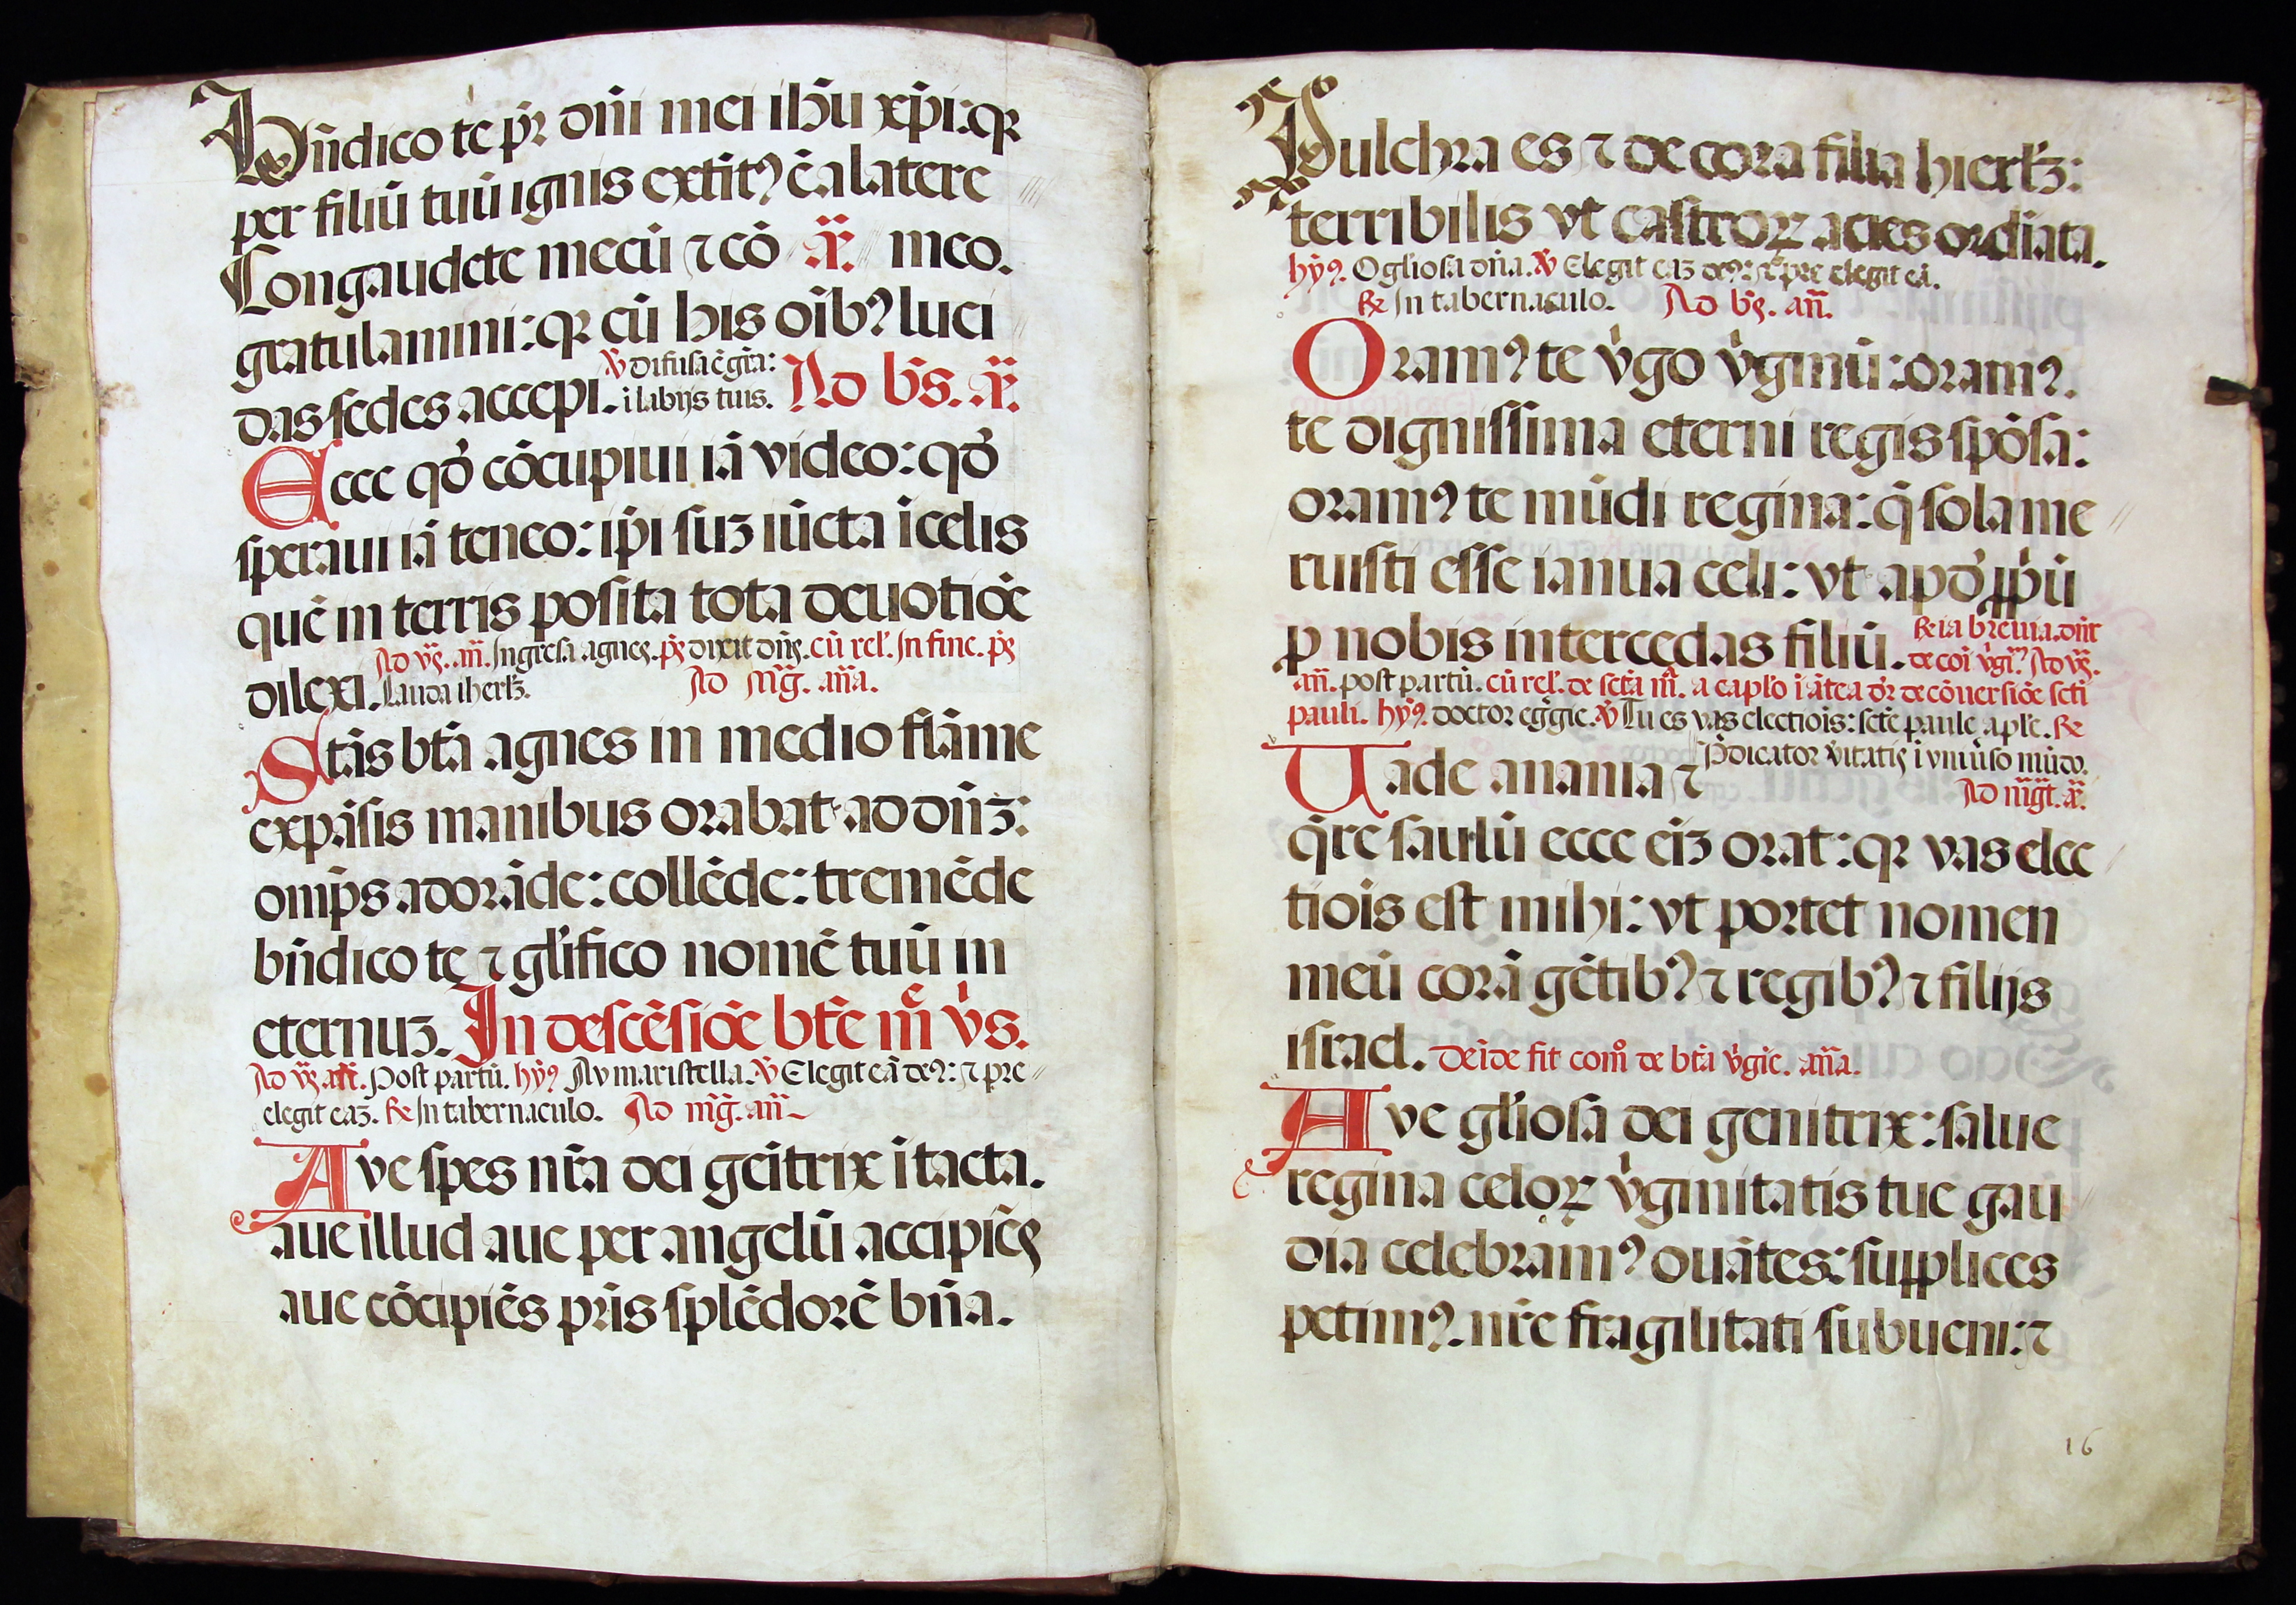 Bñdico te pr̃ dñi mei ihũ xp̃i: qꝛ
per filiũ tuũ ignis extitꝰ ẽ a latere
Congaudete mecũ ⁊ cõ ã. meo.
gratulamini: qꝛ cũ his oĩbꝰ luci
℣ difusa ẽ gr̃a:
das sedes accepi. ĩ labijs tuis. Ad bꝰs. ã.
Ecce qđ cõcupiui iã video: qđ
speraui iã teneo: ip̃i suꝫ iũcta ĩ celis
quẽ in terris posita tota deuotiõe
Ad v̾ꝰ. añ. Ingresa agnes. ps̃ dixit dñs. cũ rel'. In fine. ps̃
dilexi. Lauda iherl̃ꝫ. Ad mg̃. aña.
Stãs btã agnes in medio flãme
expãsis manibus orabat ad dñꝫ:
omp̃s adorãde: collẽde: tremẽde
bñdico te ⁊ gl̃ifico nomẽ tuũ in
eternuꝫ. In descẽsiõe btẽ m̃e v̾s.
Ad v̾ꝰ. añ. Post partũ. hỹꝰ Av maristella. ℣ Elegit eã deꝰ: ⁊ pre
elegit eaꝫ. ℟ In tabernaculo. Ad mg̃. añ
Ave spes nr̃a dei geĩtrix ĩtacta.
aue illud aue per angelũ accipiẽs
aue cõcipiẽs pr̃is splẽdorẽ bñã.
Pulchra es ⁊ decora filia hierl̃ꝫ:
terribilis vt castroꝝ acies ordĩata.
hỹꝰ. O gl̃iosa dñã. ℣ Elegit eaꝫ deꝰ: ⁊ pre elegit eã.
℟ In tabernaculo. Ad bꝰs. añ.
Oramꝰ te v̾go v̾ginũ: oramꝰ.
te dignissima eterni regis spõsa:
oramꝰ te mũdi regina: q̃ sola me
ruisti esse ianua celi: vt apđ ꝓp̃ũ
ꝓ nobis intercedas filiũ. ℟ia breuia. dñt̃
de coĩ v̾gĩꝰ. Ad v̾ꝰ.
añ. post partũ. cũ rel'. de sctã m̃. a capl'o ĩ ãtea dr̃ de cõuersiõe scti
pauli. hỹꝰ. doctor egrĝie. ℣ Tu es vas electiõis: scte paule apl'e. ℟
Vade anania ⁊ P̃dicator v̾itatis ĩ vniũso mũdo.
Ad mg̃t. ã.
q̃re saulũ ecce eĩꝫ orat: qꝛ vas elec
tiõis est mihi: vt portet nomen
meũ corã gẽtibꝰ ⁊ regibꝰ ⁊ filijs
israel. Deĩde fit com̃ de btã v̾gie. aña.
Ave gl̃iosa dei genitrix: salue
regina celoꝝ v̾ginitatis tue gau
dia celebramꝰ ouãtes: supplices
petimꝰ. nr̃e fragilitati subueni: ⁊
16